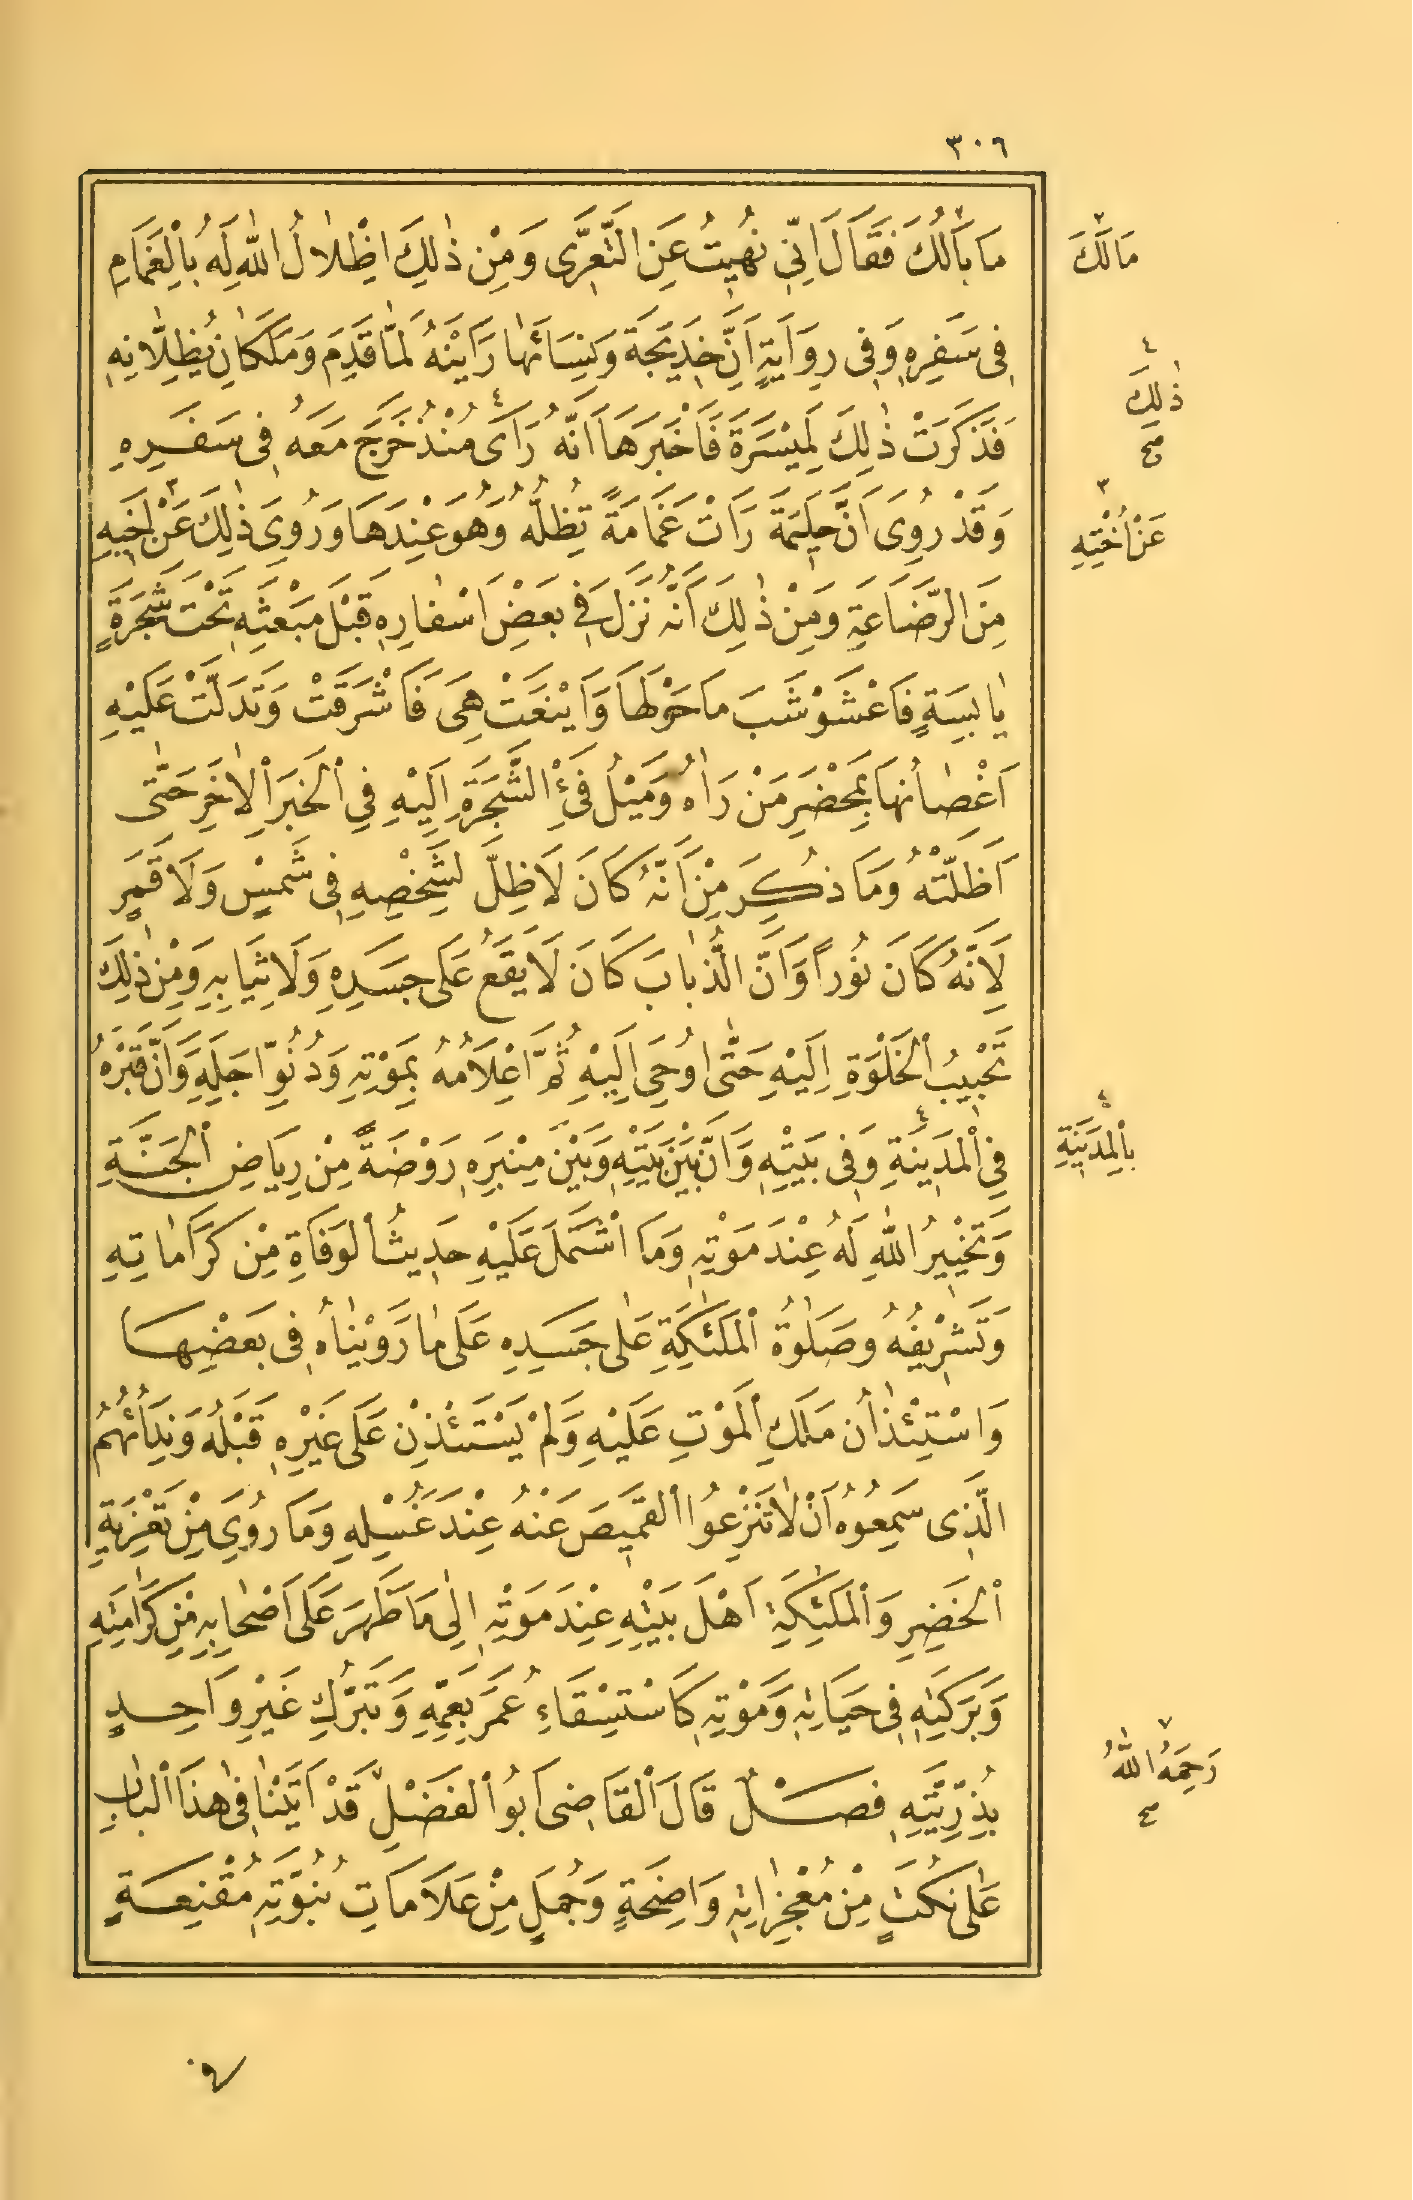 ٣٠٦
مَا بَالُكَ فَقَالَ اِنِّى نُهِيتُ عَنِ التَّعَرِّى وَمِنْ ذٰلِكَ اِظْلَالُ اللّٰهِ لَهُ بِالْغَمَامِ
فِى سَفَرِهِ وَفِى رِوَايَةٍ اَنَّ خَدِيجَةَ وَنِسَائَهَا رَاَيْنَهُ لَمَّا قَدِمَ وَمَلَكَانِ يُظِلَّانِهِ
فَذَكَرَتْ ذٰلِكَ لِمَيْسَرَةَ فَاَخْبَرَهَا اَنَّهُ رَاٰى مُنْذُ خَرَجَ مَعَهُ فِى سَفَرِهِ
وَقَدْ رُوِىَ اَنَّ حَلِيمَةَ رَاَتْ غَمَامَةً تُظِلُّهُ وَهُوَ عِنْدَهَا وَرُوِىَ ذٰلِكَ عَنْ اَخِيهِ
مِنَ الرَّضَاعَةِ وَمِنْ ذٰلِكَ اَنَّهُ نَزَلَ فِى بَعْضِ اَسْفَارِهِ قَبْلَ مَبْعَثِهِ تَحْتَ شَجَرَةٍ
يَابِسَةٍ فَاعْشَوْشَبَ مَا حَوْلَهَا وَاَيْنَعَتْ هِىَ فَاَشْرَقَتْ وَتَدَلَّتْ عَلَيْهِ
اَغْصَانُهَا بِمَحْضَرِ مَنْ رَاٰهُ وَمَيْلُ فَىْءِ الشَّجَرَةِ اِلَيْهِ فِى الْخَبَرِ الْاٰخَرِ حَتَّى
اَظَلَّتْهُ وَمَا ذُكِرَ مِنْ اَنَّهُ كَانَ لَا ظِلَّ لِشَخْصِهِ فِى شَمْسٍ وَلَا قَمَرٍ
لِاَنَّهُ كَانَ نُورًا وَاَنَّ الذُّبَابَ كَانَ لَا يَقَعُ عَلَى جَسَدِهِ وَلَا ثِيَابِهِ وَمِنْ ذٰلِكَ
تَحْبِيبُ الْخَلْوَةِ اِلَيْهِ حَتَّى اُوحِىَ اِلَيْهِ ثُمَّ اِعْلَامُهُ بِمَوْتِهِ وَدُنُوِّ اَجَلِهِ وَاَنَّ قَبْرَهُ
فِى الْمَدِينَةِ وَفِى بَيْتِهِ وَاَنَّ بَيْنَ بَيْتِهِ وَبَيْنَ مِنْبَرِهِ رَوْضَةً مِنْ رِيَاضِ الْجَنَّةِ
وَتَخْيِيرُ اللّٰهِ لَهُ عِنْدَ مَوْتِهِ وَمَا اشْتَمَلَ عَلَيْهِ حَدِيثُ الْوَفَاةِ مِنْ كَرَامَاتِهِ
وَتَشْرِيفُهُ وَصَلٰوةُ الْمَلٰئِكَةِ عَلٰى جَسَدِهِ عَلَى مَا رَوَيْنَاهُ فِى بَعْضِهَا
وَاسْتِئْذَانُ مَلَكِ الْمَوْتِ عَلَيْهِ وَلَمْ يَسْتَئْذِنْ عَلَى غَيْرِهِ قَبْلَهُ وَنِدَائُهُمُ
الَّذِى سَمِعُوهُ اَنْ لَا تَنْزِعُوا الْقَمِيصَ عَنْهُ عِنْدَ غُسْلِهِ وَمَا رُوِىَ مِنْ تَعْزِيَةِ
الْخَضِرِ وَالْمَلٰئِكَةِ اَهْلَ بَيْتِهِ عِنْدَ مَوْتِهِ اِلٰى مَا ظَهَرَ عَلَى اَصْحَابِهِ مِنْ كَرَامَتِهِ
وَبَرَكَتِهِ فِى حَيَاتِهِ وَمَوْتِهِ كَاسْتِسْقَاءِ عُمَرَ بِعَمِّهِ وَتَبَرُّكِ غَيْرِ وَاحِدٍ
بِذُرِّيَّتِهِ فَصْلٌ قَالَ الْقَاضِى اَبُو الْفَضْلِ ٧ قَدْ اَتَيْنَا فِى هٰذَا الْبَابِ
عَلٰى نُكَتٍ مِنْ مُعْجِزَاتِهِ وَاضِحَةٍ وَجُمَلٍ مِنْ عَلَامَاتِ نُبُوَّتِهِ مُقْنِعَةٍ
٢
مَا لَكَ
٤
ذٰلِكَ
صح
٣
عَنْ اُخْتِهِ
٤
بِالْمَدِينَةِ
٧
رَحِمَهُ اللّٰهُ
صح